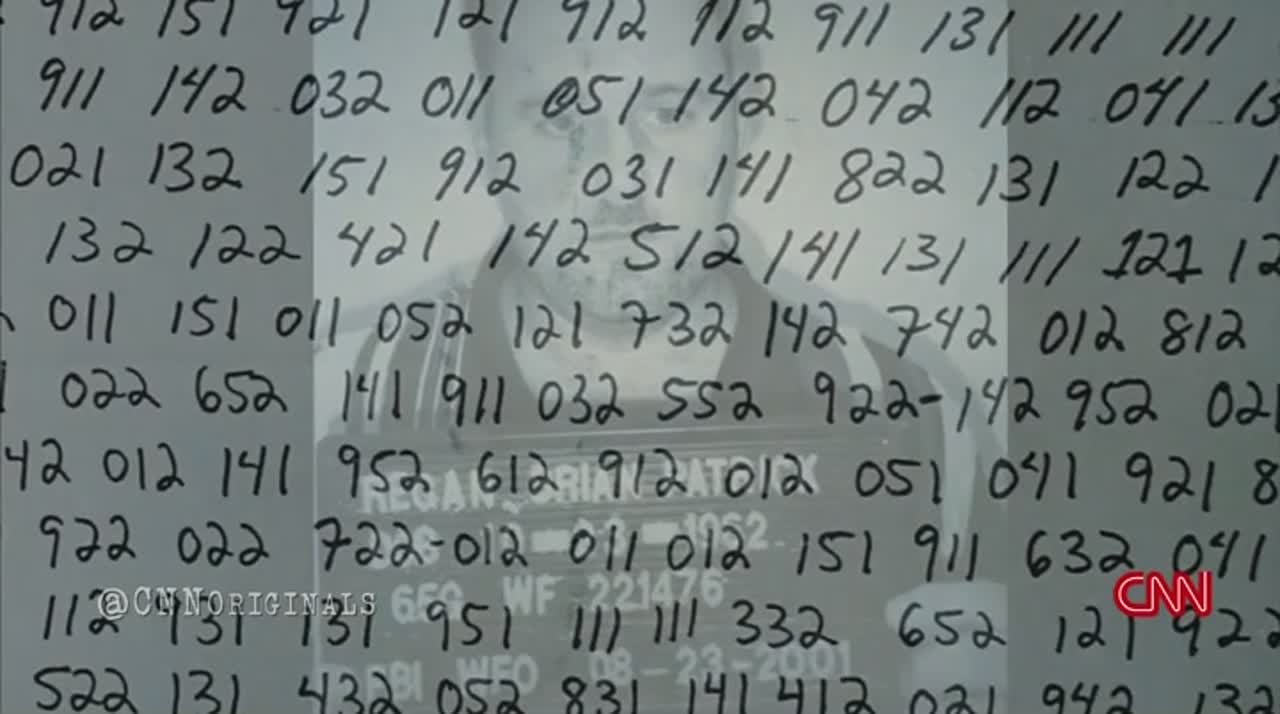 912 151 921 121 912 112 911 131 111 111
911 142 032 011 051 142 042 112 041 13
021 132 151 912 031 141 822 131 122 1
132 122 421 142 512 141 131 111 121 12
011 151 011 052 121 732 142 742 012 812
022 652 141 911 032 552 922-142 952 021
42 012 141 952 612 912 012 051 041 921 8
REGAN, BRIAN PATRICK
922 022 722-012 011 012 151 911 632 041
1962
@CNNORIGINALS
650 WF 221476
CNN
112 931 131 951 111 111 332 652 121 922
FBI WFO 08-23-2001
522 131 432 052 831 141 412 021 942 132